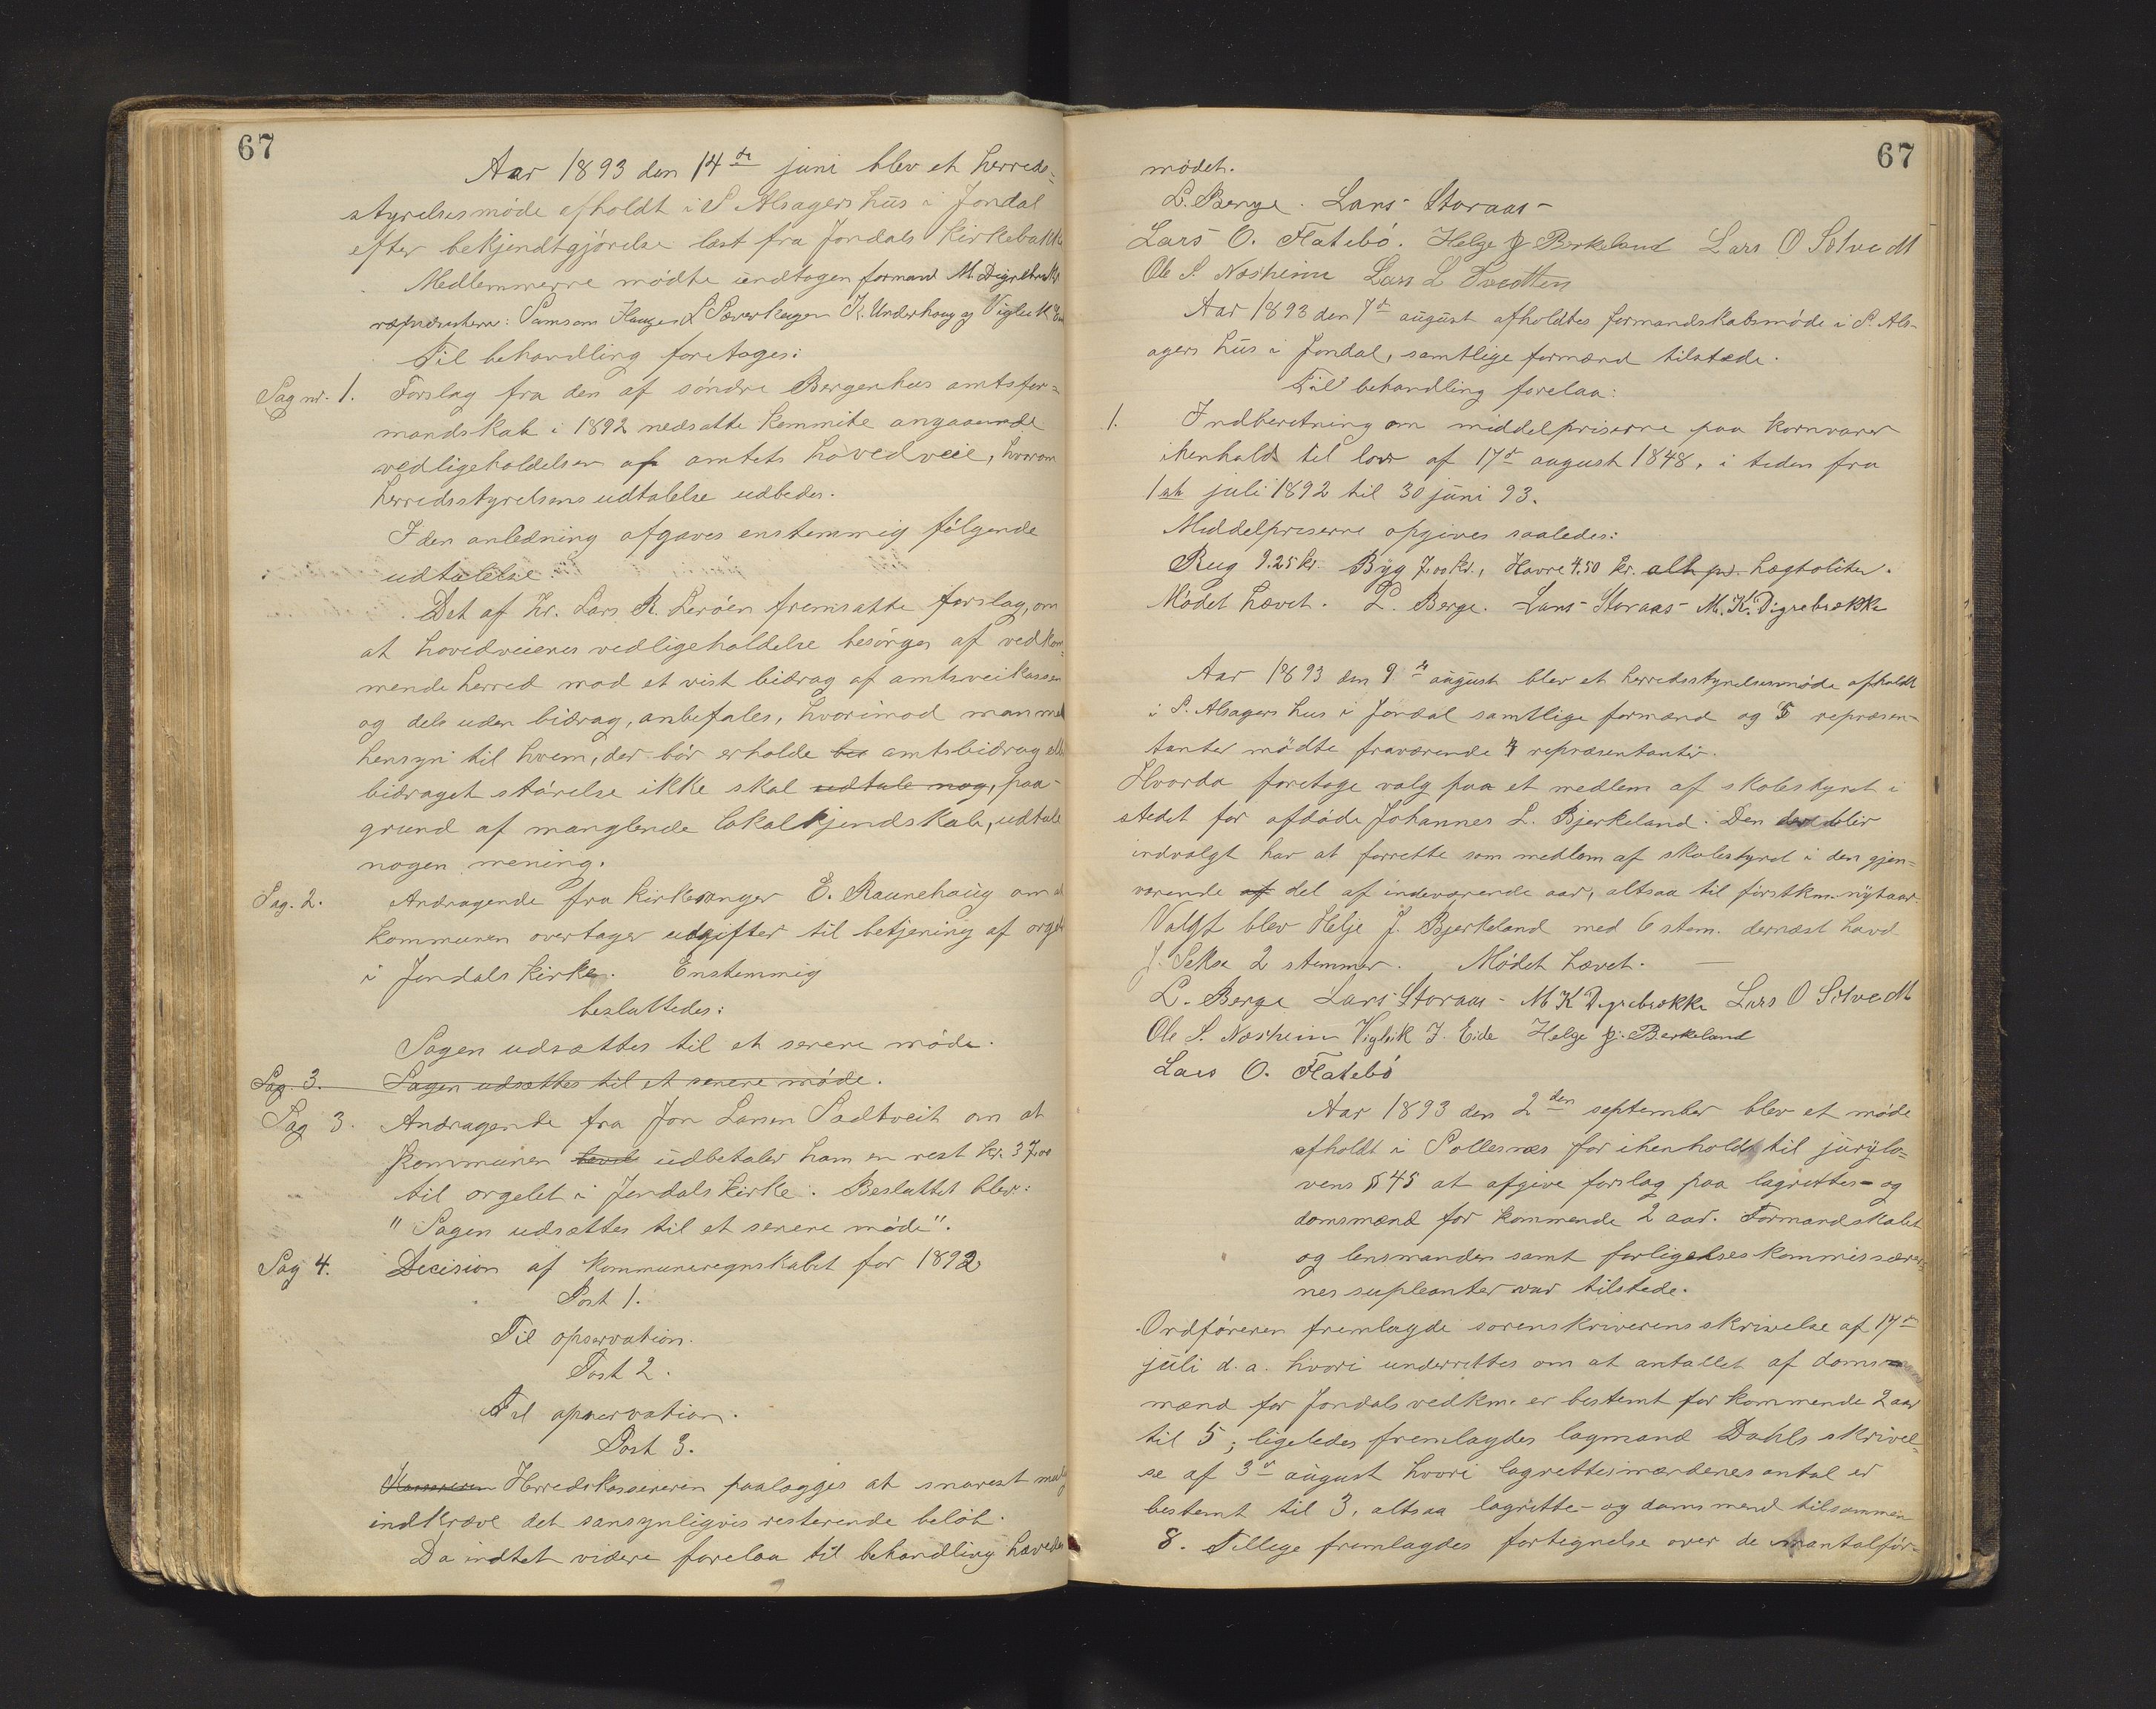 67
Aar 1893 den 14de juni blev et herreds=
styrelsesmöde afholdt i S Alsagers hus i Jondal
efter bekjendtgjörelse læst fra Jondals kirkebakke
Medlemmerne mödte undtagen formand M. Digrebrække
repræsentere: Samson Hauge, L Sæverhagen K. Underhaug og Vigleik Eide
Til behandling foretages:
Sag nr. 1. Forslag fra den af söndre Bergenhus amtsfor=
mandskab i 1892 nedsatte kommite angaaende
vedligeholdelsen af amtets hovedveie, hvorom
herredsstyrelsens udtalelse udbedes.
I den anledning afgaves enstemmig fölgende
udtalelse.
Det af Hr. Lars R. Leröen fremsatte forslag, om
at hovedveienes vedligeholdelse besörges af vedkom=
mende herred mod et vist bidrag af amtsveikassen
og dels uden bidrag, anbefales, hvorimod man med
hensyn til hvem, der bör erholde bes amtsbidrag eller
bidraget störelse ikke skal udtale nog, paa-
grund af manglende lokalkjendskab, udtale
nogen mening.
Sag. 2. Andragende fra kirkesanger E. Raunehaug om at
kommunen overtager udgifter til betjening af orgel
i Jondals kirke. Enstemmig
besluttedes:
Sagen udsættes til et senere möde.
Sag 3. Sagen udsættes til et senere möde.
Sag 3. Andragende fra Jon Larsen Sadtveit om at
kommunen udbetaler ham en rest kr. 37,00
til orgelet i Jondals kirke. Besluttet blev:
"Sagen udsættes til et senere möde".
Sag 4. Decision af kommuneregnskabet for 1892
Post 1.
Til opservation.
Post 2.
Til opservation.
Post 3.
Kassereren Herredskassereren paalægges at snarest mulig
indkræve det sansynligvis resterende belöb.
Da indtet videre forelaa til behandling hævedes
67
mödet.
L. Berge. Lars Storaas
Lars O. Flatebö. Helge J Berkeland Lars O Solvedt
Ole S. Næsheim Lars L Tveitten
Aar 1893 den 7de august afholdtes formandskabsmöde i S. Als-
agers hus i Jondal, samtlige formænd tilstede.
Til behandling forelaa:
1. Indberetning om middelpriserne paa kornvarer
ihenhold til lov af 17de august 1848, i tiden fra
1ste juli 1892 til 30 juni 93.
Middelpriserne opgives saaledes:
Rug 9.25 kr. Byg 7.00 kr., Havre 4.50 kr. alt pr. hegtoliter.
Mödet hævet. L. Berge. Lars Storaas M. K. Digrebrække
Aar 1893 den 9de august blev et herredsstyrelsesmöde afholdt
i S. Alsagers hus i Jondal samtlige formænd og 5 repræsen-
tanter mödte fraværende 4 repræsentanter.
Hvorda foretoge valg paa et medlem af skolestyret i
stedet for afdöde Johannes L. Bjerkeland. Den der blir
indvalgt har at forrette som medlem af skolestyret i den gjen=
værende af del af indeværende aar, altsaa til förstkm. nytaar.
Valgt blev Helje J. Bjerkeland med 6 stem. dernæst havd
J. Sekse 2 stemmer. Mödet hævet.
L. Berge Lars Storaas M K Digrebrække Lars O Solvedt
Ole S. Næsheim Vigleik J. Eide Helge J. Berkeland
Lars O. Flatebö
Aar 1893 den 2den september blev et möde
afholdt i Sollesnæs for ihenhold til jurylo=
vens § 45 at afgive forslag paa lagrettes- og
domsmænd for kommende 2 aar. Formandskabet
og lensmanden samt forligelseskommissærer
nes supleanter var tilstede.
Ordföreren fremlagde sorenskriverens skrivelse af 17de
juli d. a. hvori underrettes om at antallet af doms-
mænd for Jondals vedkm. er bestemt for kommende 2 aar
til 5; ligeledes fremlagdes lagmand Dahls skrivel-
se af 3de august hvori lagrettesmændenes antal er
bestemt til 3, altsaa lagrette- og domsmænd tilsammen
8. Tillige fremlagdes fortegnelse over de mantalför-